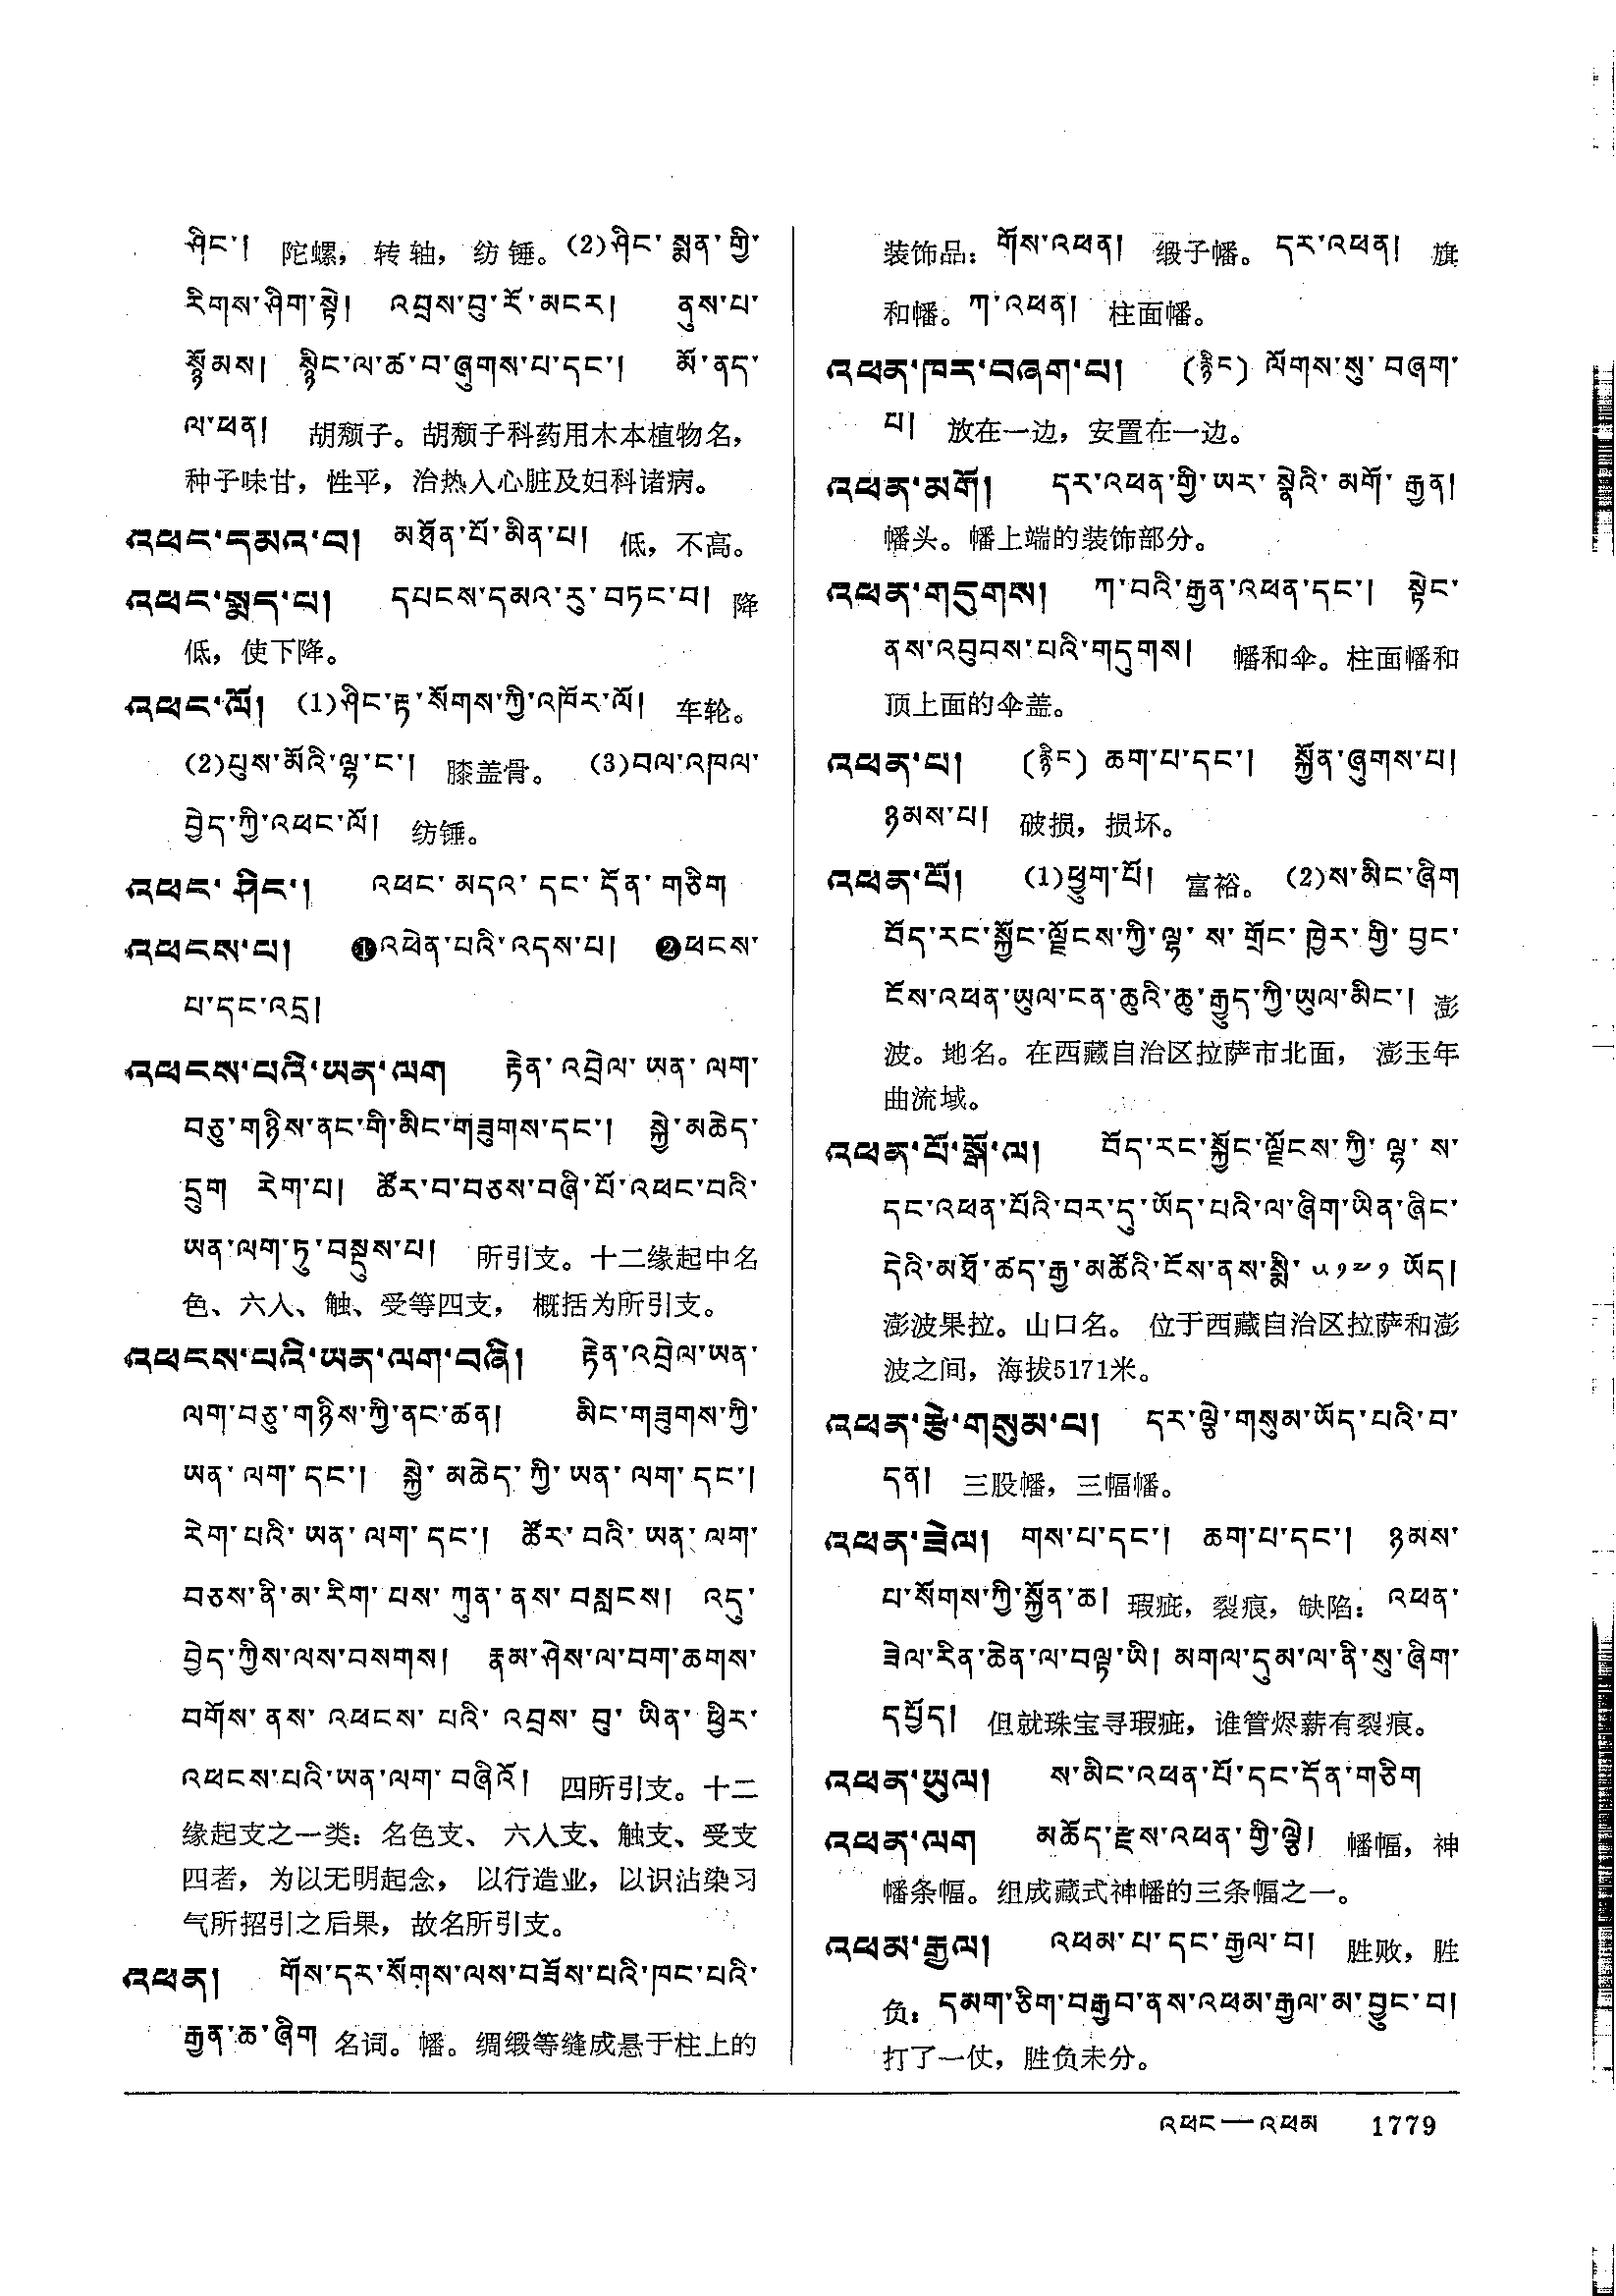 ཤིང་། 陀螺，转轴，纺锤。(2)ཤིང་སྨན་གྱི་
རིགས་ཤིག་སྟེ། འབྲས་བུ་རོ་མངར། ནུས་པ་
སྙོམས། སྙིང་ལ་ཚ་བ་ཞུགས་པ་དང་། མོ་ནད་
ལ་ཕན། 胡颓子。胡颓子科药用木本植物名，
种子味甘，性平，治热入心脏及妇科诸病。
འཕང་དམའ་བ། མཐོན་པོ་མིན་པ། 低，不高。
འཕང་སྨད་པ། དཔངས་དམའ་རུ་བཏང་བ། 降
低，使下降。
འཕང་ལོ། (1)ཤིང་རྟ་སོགས་ཀྱི་འཁོར་ལོ། 车轮。
(2)པུས་མོའི་ལྷ་ང་། 膝盖骨。 (3)བལ་འཁལ་
བྱེད་ཀྱི་འཕང་ལོ། 纺锤。
འཕང་ཤིང་། འཕང་མདའ་དང་དོན་གཅིག
འཕངས་པ། ❶འཕེན་པའི་འདས་པ། ❷ཕངས་
པ་དང་འདྲ།
འཕངས་པའི་ཡན་ལག རྟེན་འབྲེལ་ཡན་ལག་
བཅུ་གཉིས་ནང་གི་མིང་གཟུགས་དང་། སྐྱེ་མཆེད་
དྲུག རེག་པ། ཚོར་བ་བཅས་བཞི་པོ་འཕང་བའི་
ཡན་ལག་ཏུ་བསྡུས་པ། 所引支。十二缘起中名
色、六入、触、受等四支， 概括为所引支。
འཕངས་པའི་ཡན་ལག་བཞི། རྟེན་འབྲེལ་ཡན་
ལག་བཅུ་གཉིས་ཀྱི་ནང་ཚན། མིང་གཟུགས་ཀྱི་
ཡན་ལག་དང་། སྐྱེ་མཆེད་ཀྱི་ཡན་ལག་དང་།
རེག་པའི་ཡན་ལག་དང་། ཚོར་བའི་ཡན་ལག་
བཅས་ནི་མ་རིག་པས་ཀུན་ནས་བསླངས། འདུ་
བྱེད་ཀྱིས་ལས་བསགས། རྣམ་ཤེས་ལ་བག་ཆགས་
བགོས་ནས་འཕངས་པའི་འབྲས་བུ་ཡིན་ཕྱིར་
འཕངས་པའི་ཡན་ལག་བཞིའོ། 四所引支。十二
缘起支之一类：名色支、 六入支、触支、受支
四者，为以无明起念， 以行造业，以识沾染习
气所招引之后果，故名所引支。
འཕན། གོས་དར་སོགས་ལས་བཟོས་པའི་ཁང་པའི་
རྒྱན་ཆ་ཞིག 名词。幡。绸缎等缝成悬于柱上的
装饰品：གོས་འཕན། 缎子幡。དར་འཕན། 旗
和幡。ཀ་འཕན། 柱面幡。
འཕན་ཁར་བཞག་པ། (རྙིང) ལོགས་སུ་བཞག་
པ། 放在一边，安置在一边。
འཕན་མགོ། དར་འཕན་གྱི་ཡར་སྣེའི་མགོ་རྒྱན།
幡头。幡上端的装饰部分。
འཕན་གདུགས། ཀ་བའི་རྒྱན་འཕན་དང་། སྟེང་
ནས་འབུབས་པའི་གདུགས། 幡和伞。柱面幡和
顶上面的伞盖。
འཕན་པ། (རྙིང) ཆག་པ་དང་། སྐྱོན་ཞུགས་པ།
ཉམས་པ། 破损，损坏。
འཕན་པོ། (1)ཕྱུག་པོ། 富裕。 (2)ས་མིང་ཞིག
བོད་རང་སྐྱོང་ལྗོངས་ཀྱི་ལྷ་ས་གྲོང་ཁྱེར་གྱི་བྱང་
ངོས་འཕན་ཡུལ་ངན་ཆུའི་ཆུ་རྒྱུད་ཀྱི་ཡུལ་མིང་། 澎
波。地名。在西藏自治区拉萨市北面， 澎玉年
曲流域。
འཕན་པོ་སྒོ་ལ། བོད་རང་སྐྱོང་ལྗོངས་ཀྱི་ལྷ་ས་
དང་འཕན་པོའི་བར་དུ་ཡོད་པའི་ལ་ཞིག་ཡིན་ཞིང་
དེའི་མཐོ་ཚད་རྒྱ་མཚོའི་ངོས་ནས་སྨི་༥༡༧༡ ཡོད།
澎波果拉。山口名。 位于西藏自治区拉萨和澎
波之间，海拔5171米。
འཕན་རྩེ་གསུམ་པ། དར་ལྕེ་གསུམ་ཡོད་པའི་བ་
དན། 三股幡，三幅幡。
འཕན་ཟེལ། གས་པ་དང་། ཆག་པ་དང་། ཉམས་
པ་སོགས་ཀྱི་སྐྱོན་ཆ། 瑕疵，裂痕，缺陷：འཕན་
ཟེལ་རིན་ཆེན་ལ་བལྟ་ཡི། མགལ་དུམ་ལ་ནི་སུ་ཞིག་
དཔྱོད། 但就珠宝寻瑕疵，谁管烬薪有裂痕。
འཕན་ཡུལ། ས་མིང་འཕན་པོ་དང་དོན་གཅིག
འཕན་ལག མཆོད་རྫས་འཕན་གྱི་ལྕེ། 幡幅，神
幡条幅。组成藏式神幡的三条幅之一。
འཕམ་རྒྱལ། འཕམ་པ་དང་རྒྱལ་བ། 胜败，胜
负：དམག་ཅིག་བརྒྱབ་ནས་འཕམ་རྒྱལ་མ་བྱུང་བ།
打了一仗，胜负未分。
འཕང—འཕམ 1779